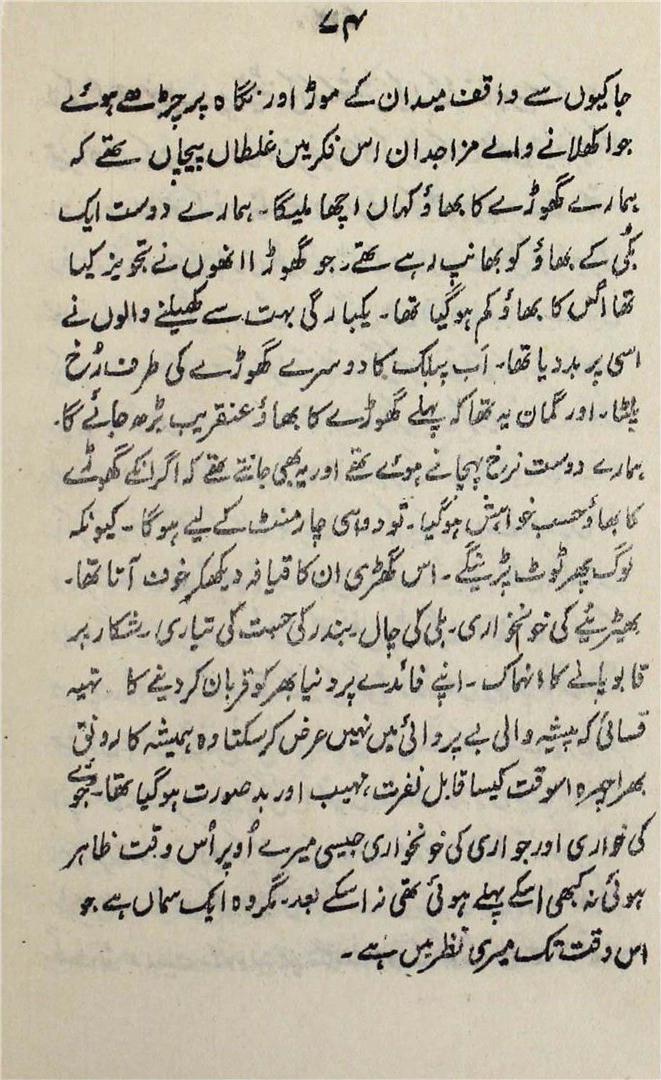 ۷۴
جاکیوں سے واقف میدان کے موڑ اور نگاہ پر چڑھے ہوئے
جوا کھلانے والے مزاجدان اس فکر میں غلطاں پیچاں تھے کہ
ہمارے گھوڑے کا بھاؤ کہاں اچھا ملیگا۔ ہمارے دوست ایک
بکی کے بھاؤ کو بھانپ رہے تھے۔ جو گھوڑا انھوں نے تجویز کیا
تھا اُس کا بھاؤ کم ہوگیا تھا۔ یکبارگی بہت سے کھیلنے والوں نے
اسی پر بد دیا تھا۔ اب پبلک کا دوسرے گھوڑے کی طرف رُخ
پلٹا۔ اور گمان یہ تھا کہ پہلے گھوڑے کا بھاؤ عنقریب بڑھ جائے گا۔
ہمارے دوست نرخ پہچانے ہوئے تھے اور یہ بھی جانتے تھے کہ اگر انکے گھوڑے
کا بھاؤ حسب خواہش ہوگیا۔ تو دو ہی چار منٹ کے لیے ہوگا۔ کیونکہ
لوگ پھر ٹوٹ پڑینگے۔ اس گھڑی ان کا قیافہ دیکھکر خوف آتا تھا۔
بھیڑیئے کی خونخواری۔ بلی کی چال۔ بندر کی جست کی تیاری۔ شکار پر
قابو پانے کا انہماک۔ اپنے فائدے پر دنیا بھر کو قربان کر دینے کا تہیہ
قسائی کہ پیشہ والی بے پروائی میں نہیں عرض کرسکتا وہ ہمیشہ کا رونق
بھرا چہرہ اسوقت کیسا قابل نفرت، مہیب اور بد صورت ہوگیا تھا۔ جوئے
کی خواری اور جواری کی خونخواری جیسی میرے اُوپر اُس وقت ظاہر
ہوئی نہ کبھی اسکے پہلے ہوئی تھی نہ اسکے بعد۔ مگر وہ ایک سماں ہے جو
اس وقت تک میری نظر میں ہے۔